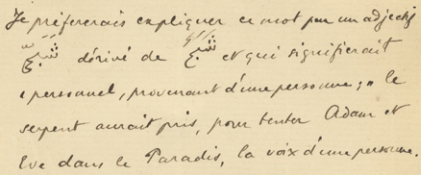 Je préfèrerais expliquer ce mot par un adjectif
شبحيّ dérivé de شبح et qui signifierait
"personnel, provenant d'une personne;" le
serpent aurait pris, pour tenter Adam et
Eve dans le Paradis, la voix d'une personne.